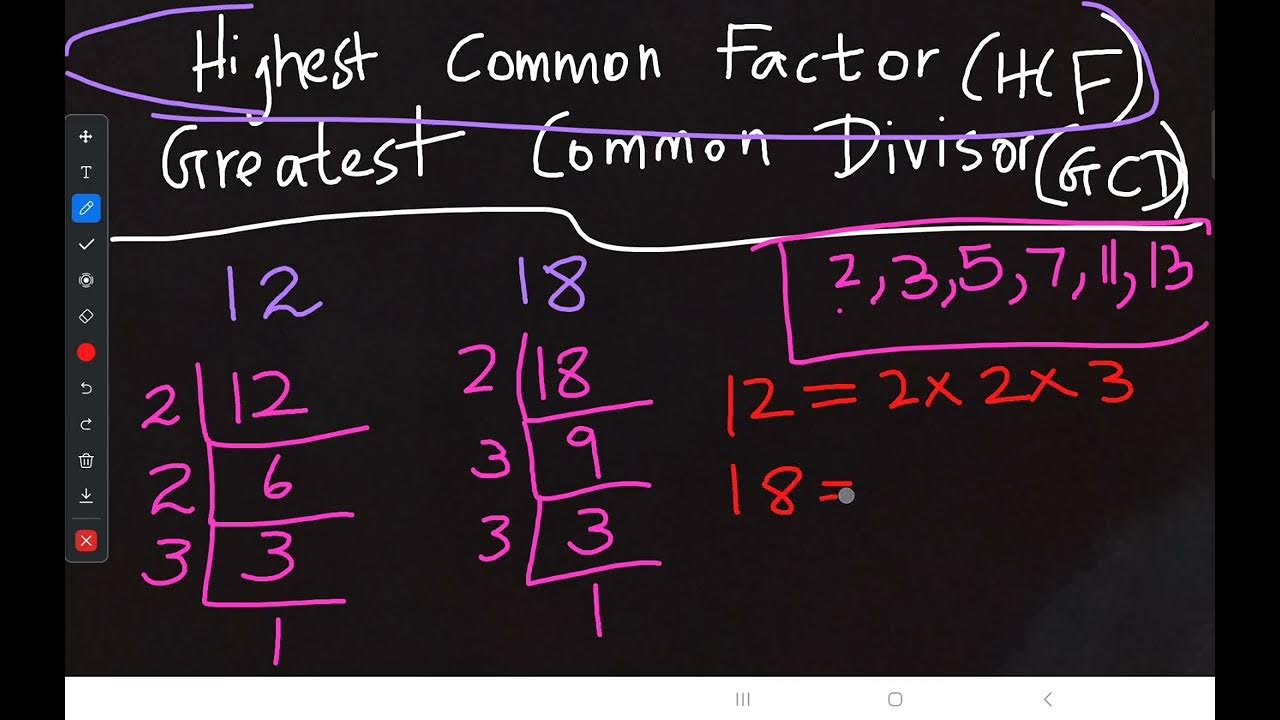 Highest Common Factor (HCF)
Greatest Common Divisor (GCD)
12 18 2, 3, 5, 7, 11, 13
2 12
2 6
3 3
1
2 18
3 9
3 3
1
12 = 2 × 2 × 3
18 =
T